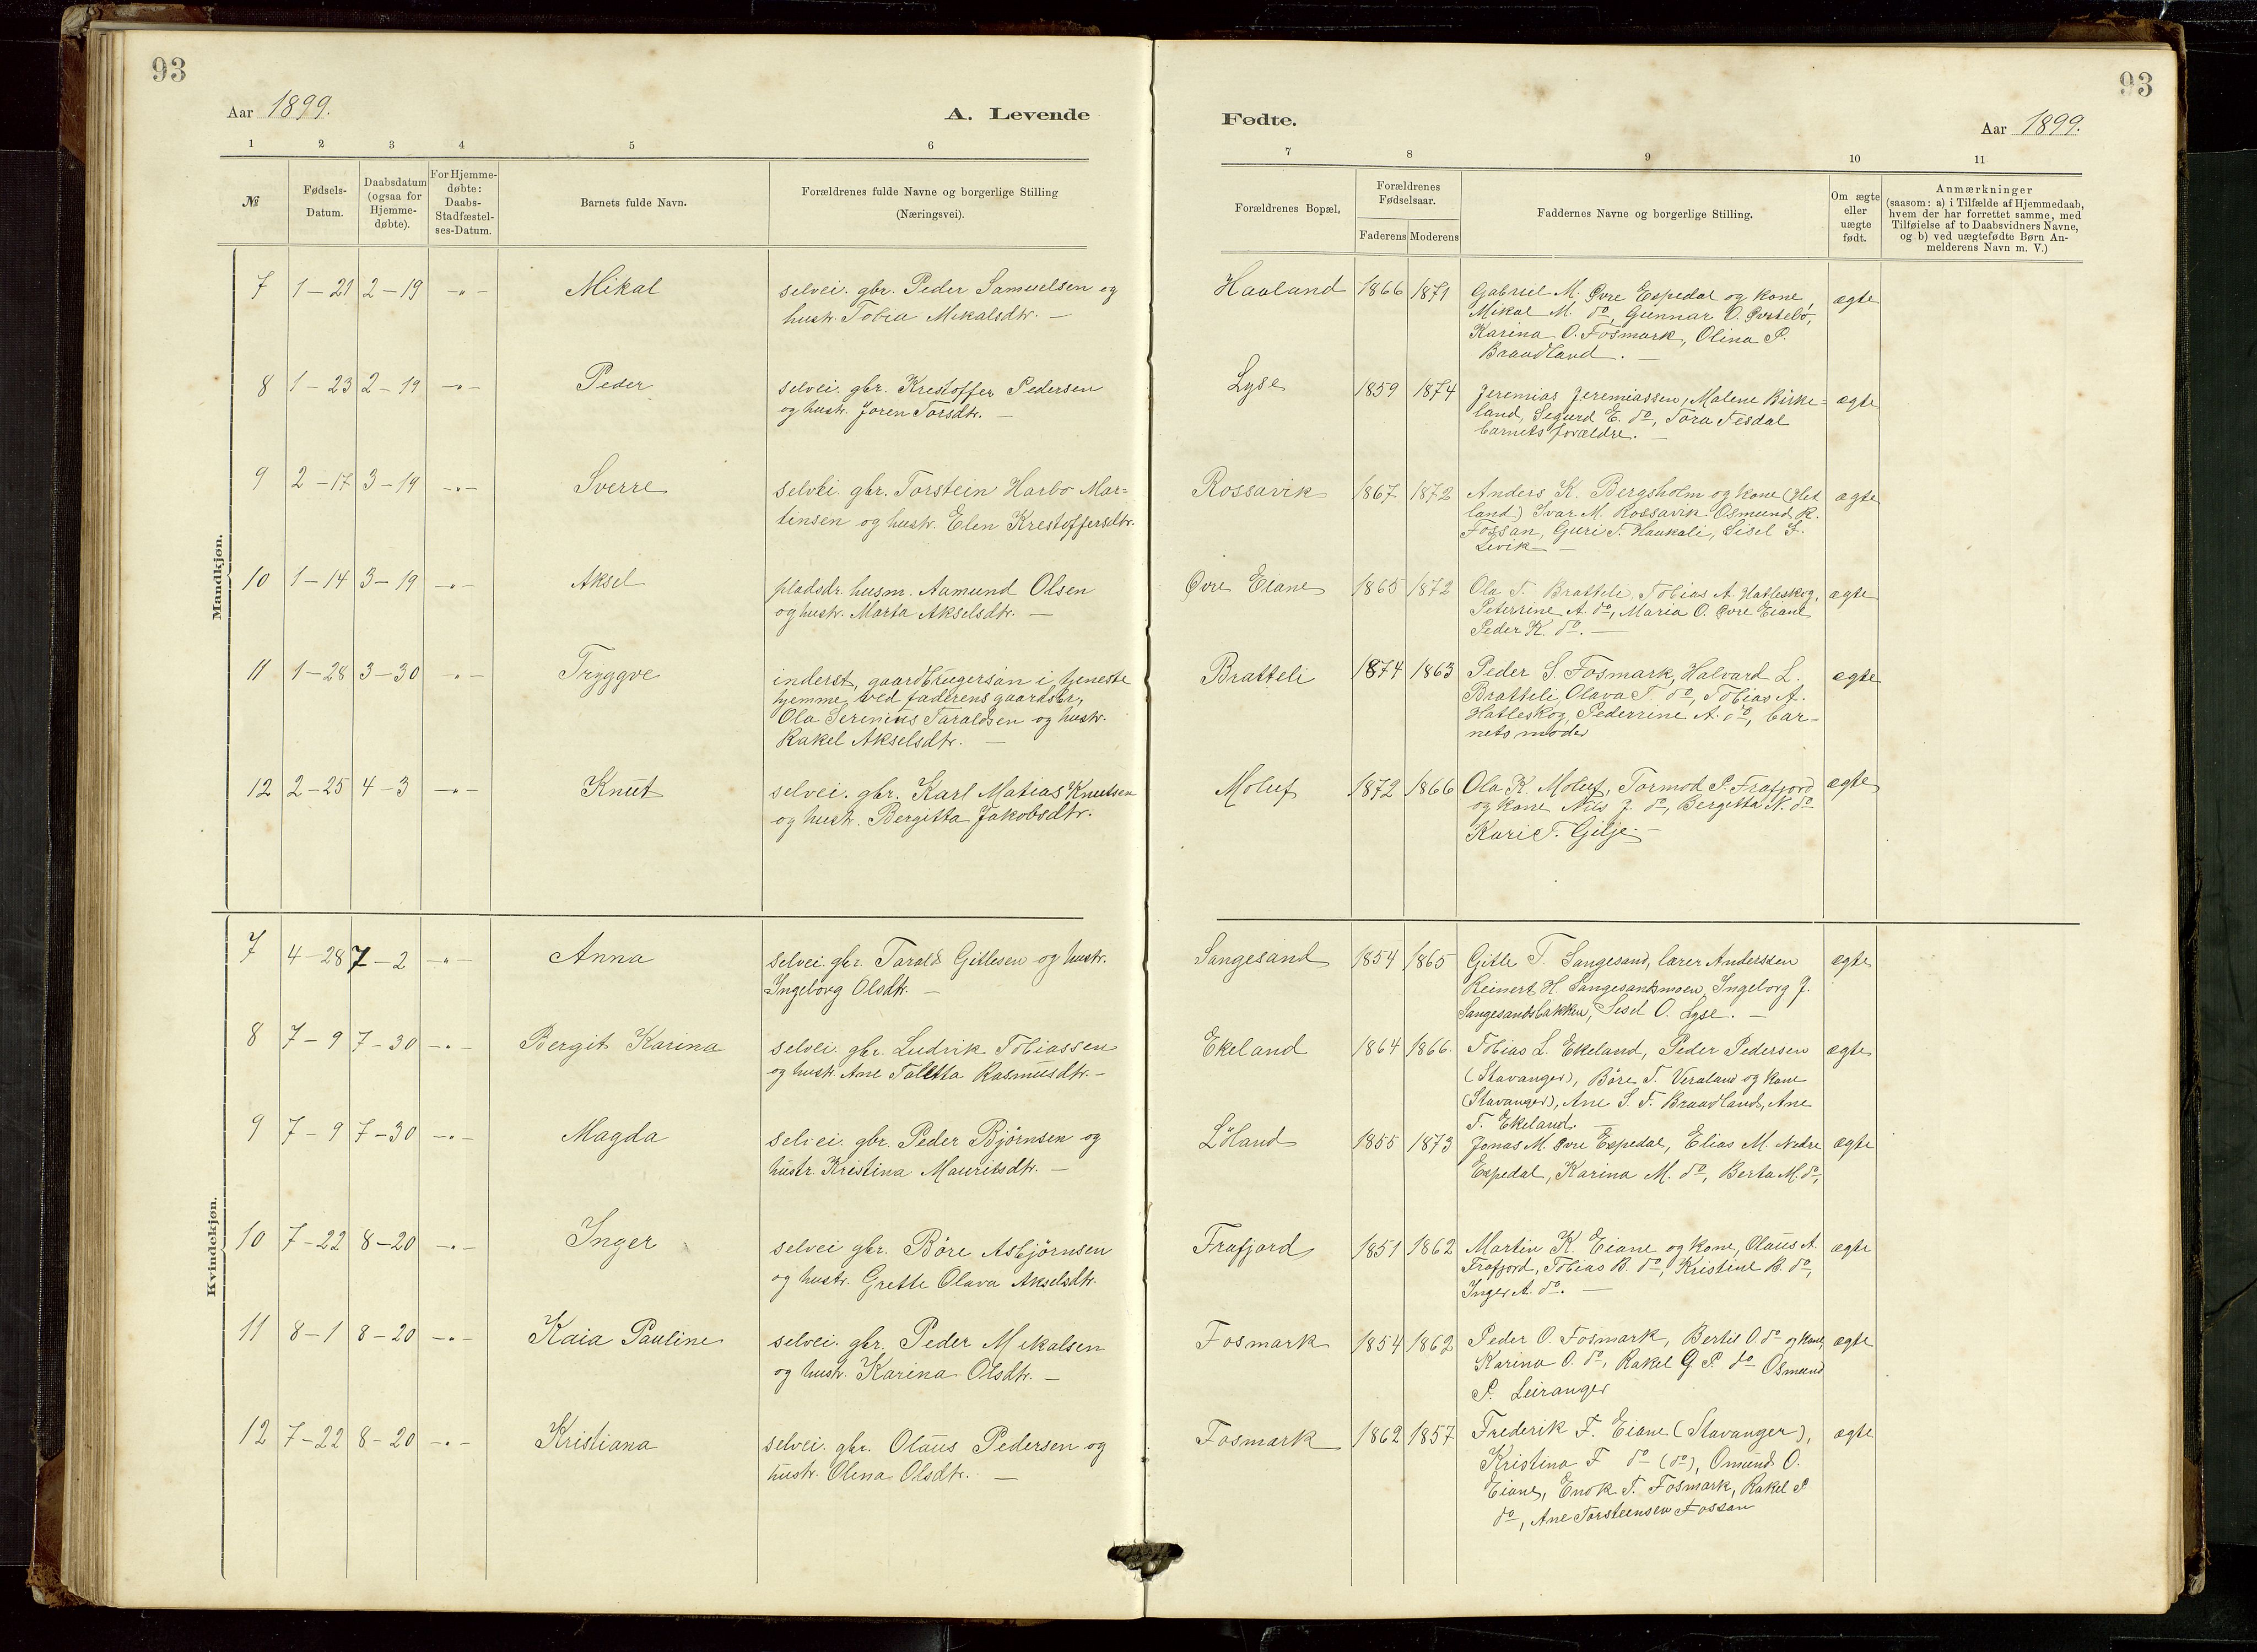 93
93
Aar 1899.
A. Levende
Fødte.
Aar 1899.
1 2 3 4 5 6 7 8 9 10 11
№
Fødsels-
Datum.
Daabsdatum
(ogsaa for
Hjemme-
døbte).
For Hjemme-
døbte:
Daabs-
Stadfæstel-
ses-Datum.
Barnets fulde Navn.
Forældrenes fulde Navne og borgerlige Stilling
(Næringsvei).
Forældrenes Bopæl.
Forældrenes
Fødselsaar.
Faderens Moderens
Faddernes Navne og borgerlige Stilling.
Om ægte
eller
uægte
født.
Anmærkninger
(saasom: a) i Tilfælde af Hjemmedaab,
hvem der har forrettet samme, med
Tilføielse af to Daabsvidners Navne,
og b) ved uægtefødte Børn An-
melderens Navn m. V.)
Mandkjøn.
7 1-21 2-19 -"- Mikal
selvei. gbr. Peder Samuelsen og
hustr. Tobia Mikalsdtr. —
Haaland 1866 1871
Gabriel M. Øvre Espedal og kone,
Mikal M. do, Gunnar O. Øvstebö,
Karina O. Fosmark, Olina P.
Braadland. —
ægte
8 1-23 2-19 -"- Peder
selvei. gbr. Krestoffer Pedersen
og hustr. Joren Torsdtr. —
Lyse 1859 1874
Jeremias Jeremiassen, Malene Birke=
land, Segurd E. do, Tora Tesdal
barnets forældre. —
ægte
9 2-17 3-19 -"- Sverre
selvei. gbr. Torstein Harbo Mar=
tinsen og hustr. Elen Krestoffersdtr.
Rossavik 1867 1872
Anders K. Bergsholm og kone (Het
land) Ivar M. Rossavik Osmund R.
Fossan, Guri T. Haukali, Sisel F.
Levik —
ægte
10 1-14 3-19 -"- Aksel
pladsdr. husm. Aamund Olsen
og hustr. Marta Akselsdtr. —
Øvre Eiane 1865 1872
Ola T. Bratteli, Tobias A. Hatleskog,
Peterrine A. do, Maria O. Øvre Eiane
Peder K. do. —
ægte
11 1-28 3-30 -"- Tryggve
inderst, gaardbrugersøn i tjeneste
hjemme ved faderens gaardsbr,
Ola Serenius Taraldsen og hustr.
Rakel Akselsdtr. —
Bratteli 1874 1863
Peder S. Fosmark, Halvard L.
Bratteli, Olava T. do, Tobias A.
Hatleskog, Pederrine A. do, bar=
nets moder
ægte
12 2-25 4-3 -"- Knut
selvei. gbr. Karl Matias Knutsen
og hustr. Bergitta Jakobsdtr.
Moluf 1872 1866
Ola K. Moluf, Tormod P. Frafjord
og kone Nils J. do, Bergitta N. do
Kari T. Gilje. —
ægte
Kvindekjøn.
7 4-28 7-2 -"- Anna
selvei. gbr. Tarald Gitlesen og hustr.
Ingeborg Olsdtr. —
Sangesand 1854 1865
Gitle T. Sangesand, lærer Anderssen
Reinert H. Sangesandsmoen, Ingeborg J.
Sangesandsbakken, Sisel O. Lyse. —
ægte
8 7-9 7-30 -"- Bergit Karina
selvei. gbr. Ludvik Tobiassen
og hustr. Ane Taletta Rasmusdtr. -
Ekeland 1864 1866.
Tobias L. Ekeland, Peder Pedersen
(Stavanger), Böre T. Veraland og kone
(Stavanger), Ane S. T. Braadland, Ane
T. Ekeland. —
ægte
9 7-9 7-30 -"- Magda
selvei. gbr. Peder Björnsen og
hustr. Kristina Mauritsdtr. —
Löland 1855 1873
Jonas M. Øvre Espedal, Elias M. Nedre
Espedal, Karina M. do, Berta M. do,
ægte
10 7-22 8-20 -"- Inger
selvei gbr. Böre Asbjörnsen
og hustr. Grette Olava Akselsdtr.
Frafjord 1851 1862
Martin K. Eiane og kone, Olaus A.
Frafjord, Tobias B. do, Kristine B. do,
Inger A. do. —
ægte
11 8-1 8-20 -"- Kaia Pauline
selvei. gbr. Peder Mikalsen
og hustr. Karina Olsdtr. —
Fosmark 1854 1862
Peder O. Fosmark, Bertil O. do og kone,
Karina O. do, Rakel G P. do Osmund
P. Leiranger
ægte
12 7-22 8-20 -"- Kristiana
selvei. gbr. Olaus Pedersen og
hustr. Olena Olsdtr. —
Fosmark 1862 1857
Frederik F. Eiane (Stavanger),
Kristina F do (do), Omund O.
Eiane, Enok T. Fosmark, Rakel P
do, Ane Torsteensen Fossan
ægte